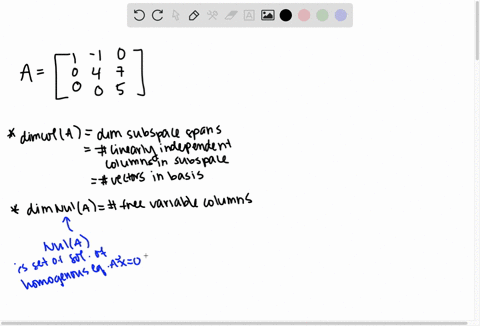 A = [ 1 -1 0
0 4 7
0 0 5 ]
* dim col(A) = dim subspace spans
= # linearly independent
columns in subspace
= # vectors in basis
* dim Nul(A) = # free variable columns
Nul(A)
is set of sol. of
homogenous eq. Ax=0